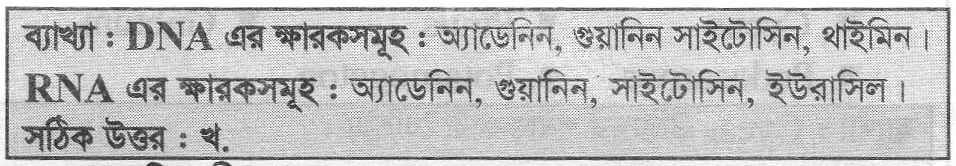 ব্যাখ্যা : DNA এর ক্ষারকসমূহ : অ্যাডেনিন, গুয়ানিন সাইটোসিন, থাইমিন।
RNA এর ক্ষারকসমূহ : অ্যাডেনিন, গুয়ানিন, সাইটোসিন, ইউরাসিল।
সঠিক উত্তর : খ.